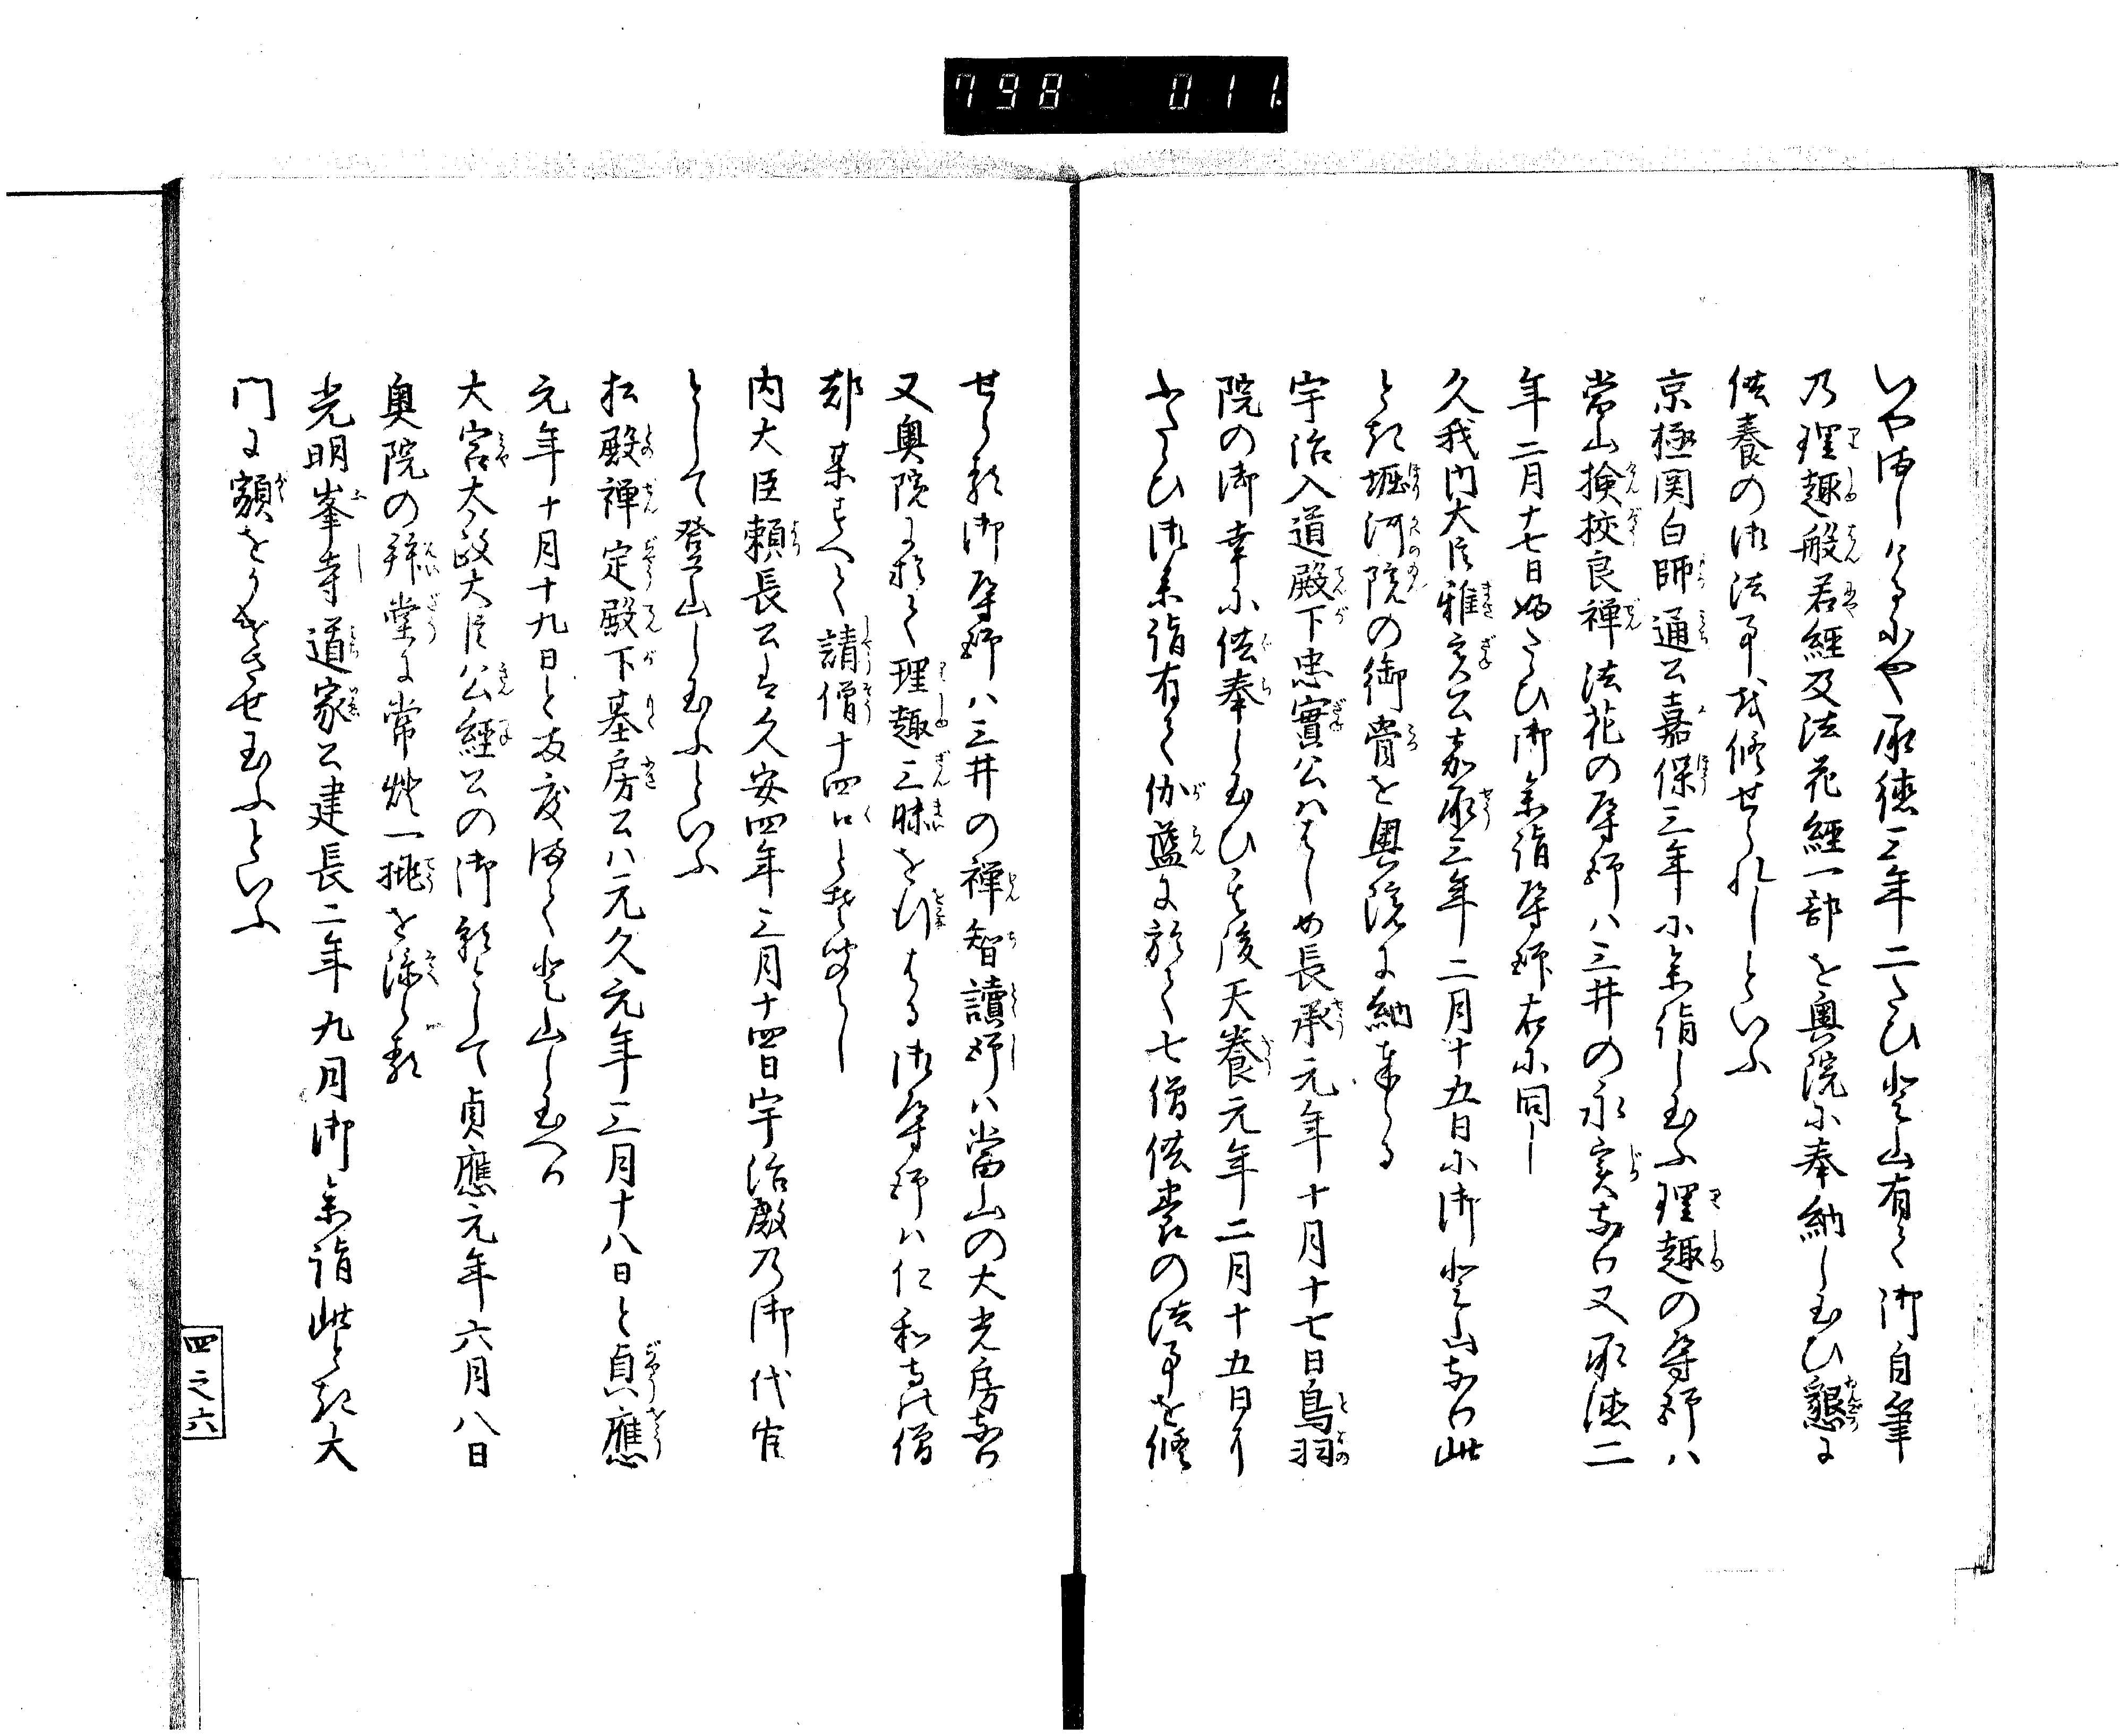 798 011
いやましけるにや承徳三年二たひ登山有て御自筆
乃理趣般若經及法花經一部を奥院に奉納し玉ひ懇に
供養の御法事を修せられしといふ
京極関白師通公嘉保三年に参詣し玉ふ理趣の導師ハ
當山撿挍良禅法花の導師ハ三井の永実なり又承徳二
年二月十七日ふたゝひ御参詣導師右に同し
久我内大臣雅実公嘉承三年二月十五日に御登山なり此
とき堀河院の御骨を奥院に納奉る
宇治入道殿下忠實公ハはしめ長承元年十月十七日鳥羽
院の御幸に供奉し玉ひ其後天養元年二月十五日より
ふたゝひ御参詣有て伽藍に於て七僧供養の法事を修
せらる御導師ハ三井の禅智讀師ハ當山の大光房なり
又奥院に於て理趣三昧を行はる御導師ハ仁和寺の僧
都某すへて請僧十四口と聞し
内大臣頼長公は久安四年三月十四日宇治殿乃御代官
として登山し玉ふといふ
松殿禅定殿下基房公ハ元久元年三月十八日と貞應
元年十月十九日と両度まて登山し玉へり
大宮太政大臣公經公の御願として貞應元年六月八日
奥院の拜堂に常燈一挑を添らる
光明峯寺道家公建長二年九月御参詣此とき大
門に額をうたさせ玉ふといふ
四之六